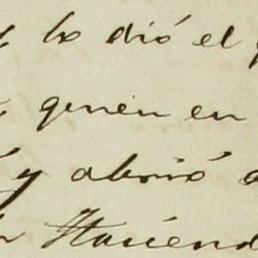 y lo dió el
quien en
y abrió
Haciend